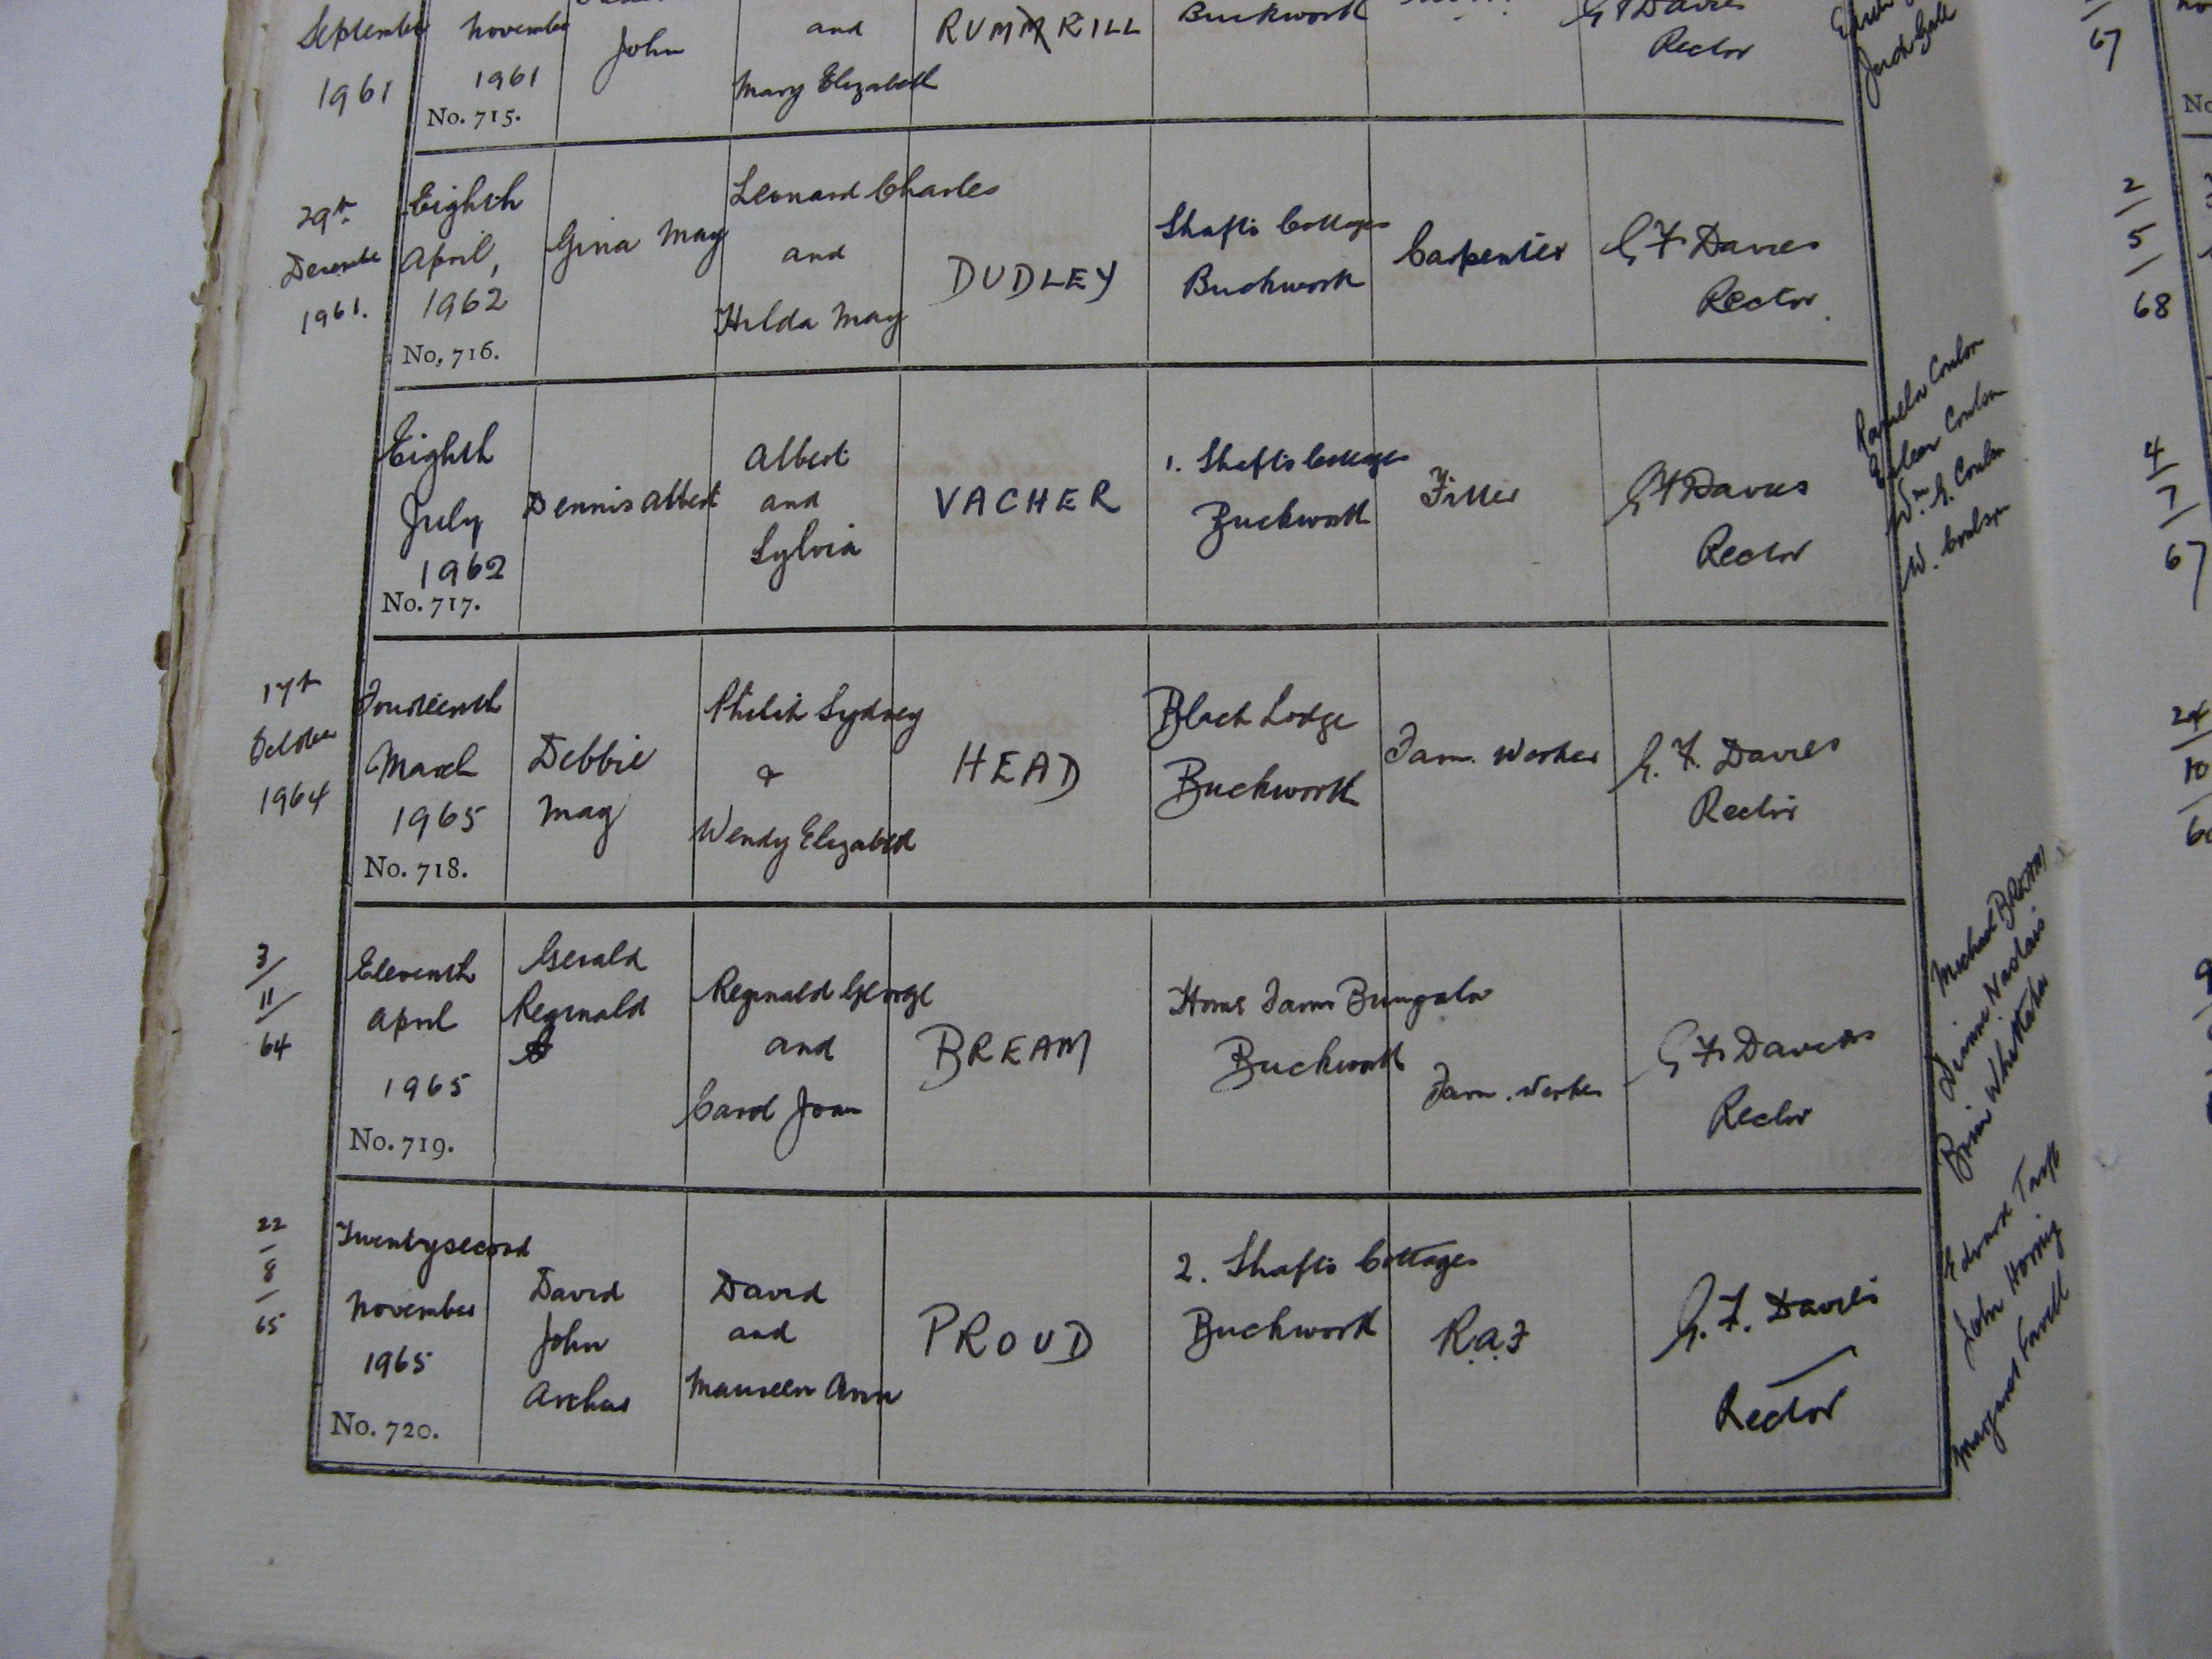 September
1961
November
1961
No. 715.
John
and
Mary Elizabeth
RUMMRILL
Buckworth
G F Davies
Rector
67
29th
December
1961.
Eighth
April,
1962
No. 716.
Gina May
Leonard Charles
and
Hilda May
DUDLEY
Shafts Cottages
Buckworth
Carpenter
G F Davies
Rector.
2/
5/
68
Eighth
July
1962
No. 717.
Dennis Albert
Albert
and
Sylvia
VACHER
1. Shafts Cottages
Buckworth
Fitter
G F Davies
Rector
Pamela Coulson
Eileen Coulson
Wm G. Coulson
W. Coulson
4/
7/
67
17th
October
1964
Fourteenth
March
1965
No. 718.
Debbie
May
Philip Sydney
&
Wendy Elizabeth
HEAD
Black Lodge
Buckworth
Farm. Worker
G. F. Davies
Rector
24/
10/
3/
11/
64
Eleventh
April
1965
No. 719.
Gerald
Reginald
Reginald George
and
Carol Joan
BREAM
Home Farm Bungalow
Buckworth
Farm. Worker
G F Davies
Rector
Michael BREAM
Brian Whittaker
22
8
65
Twentysecond
November
1965
No. 720.
David
John
Archus
David
and
Maureen Ann
PROUD
2. Shafts Cottages
Buckworth
R.A.F
G. F. Davies
Rector
Edward
John
Margaret Favell
No